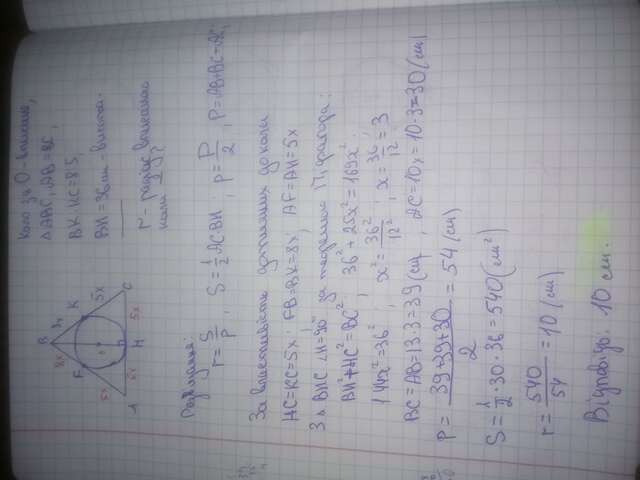 Коло з ц. O - вписане,
△ABC, AB = BC,
BK : KC = 8:5,
BH = 36 см - висота.
r - радіус вписаного кола?
B
8x
8x
F
K
5x
5x
O
A
5x
H
5x
C
Розв'язання:
r = S/p, S = 1/2 AC·BH; p = P/2, P = AB+BC+AC;
За властивістю дотичних до кола
HC=KC=5x; FB=BK=8x; AF=AH=5x
З △ BHC ∠H=90° за теоремою Піфагора:
BH²+HC²=BC²; 36²+25x²=169x²;
144x²=36²; x²=36²/12²; x=36/12=3
BC=AB=13·3=39(см), AC=10x=10·3=30(см)
P = (39+39+30)/2 = 54 (см)
S = 1/2·30·36=540(см²)
r = 540/54 = 10(см)
Відповідь: 10 см.